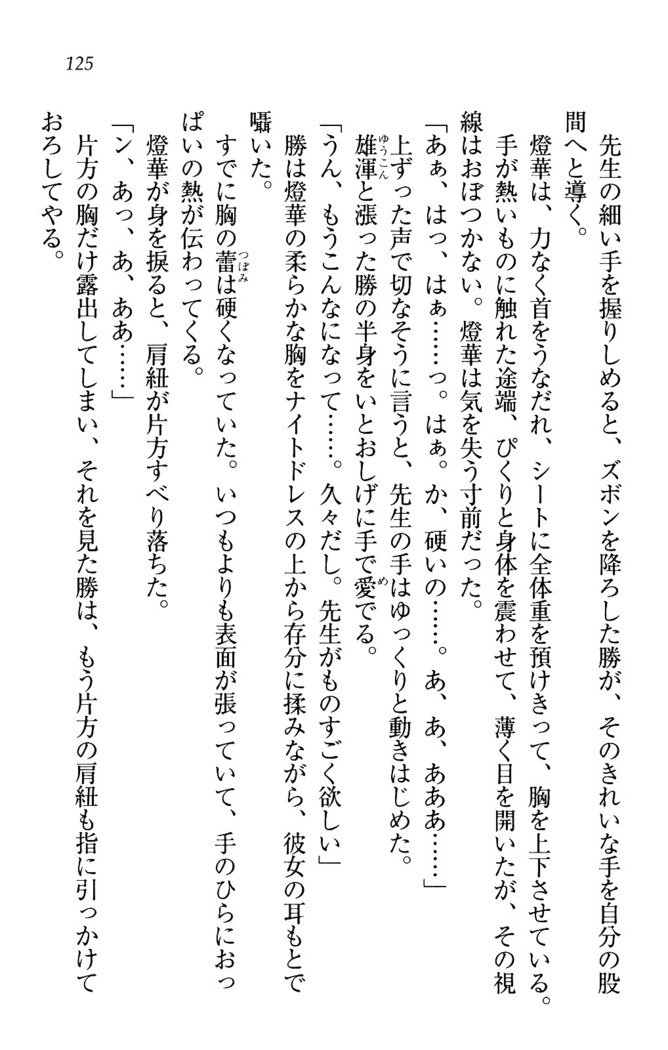 125
先生の細い手を握りしめると、ズボンを降ろした勝が、そのきれいな手を自分の股
間へと導く。
燈華は、力なく首をうなだれ、シートに全体重を預けきって、胸を上下させている。
手が熱いものに触れた途端、ぴくりと身体を震わせて、薄く目を開いたが、その視
線はおぼつかない。燈華は気を失う寸前だった。
「あぁ、はっ、はぁ……っ。はぁ。か、硬いの……。あ、あ、あああ……」
上ずった声で切なそうに言うと、先生の手はゆっくりと動きはじめた。
雄渾と漲った勝の半身をいとおしげに手で愛でる。
「うん、もうこんなになって……。久々だし。先生がものすごく欲しい」
勝は燈華の柔らかな胸をナイトドレスの上から存分に揉みながら、彼女の耳もとで
囁いた。
すでに胸の蕾は硬くなっていた。いつもよりも表面が張っていて、手のひらにおっ
ぱいの熱が伝わってくる。
燈華が身を捩ると、肩紐が片方すべり落ちた。
「ン、あっ、あ、ああ……」
片方の胸だけ露出してしまい、それを見た勝は、もう片方の肩紐も指に引っかけて
おろしてやる。